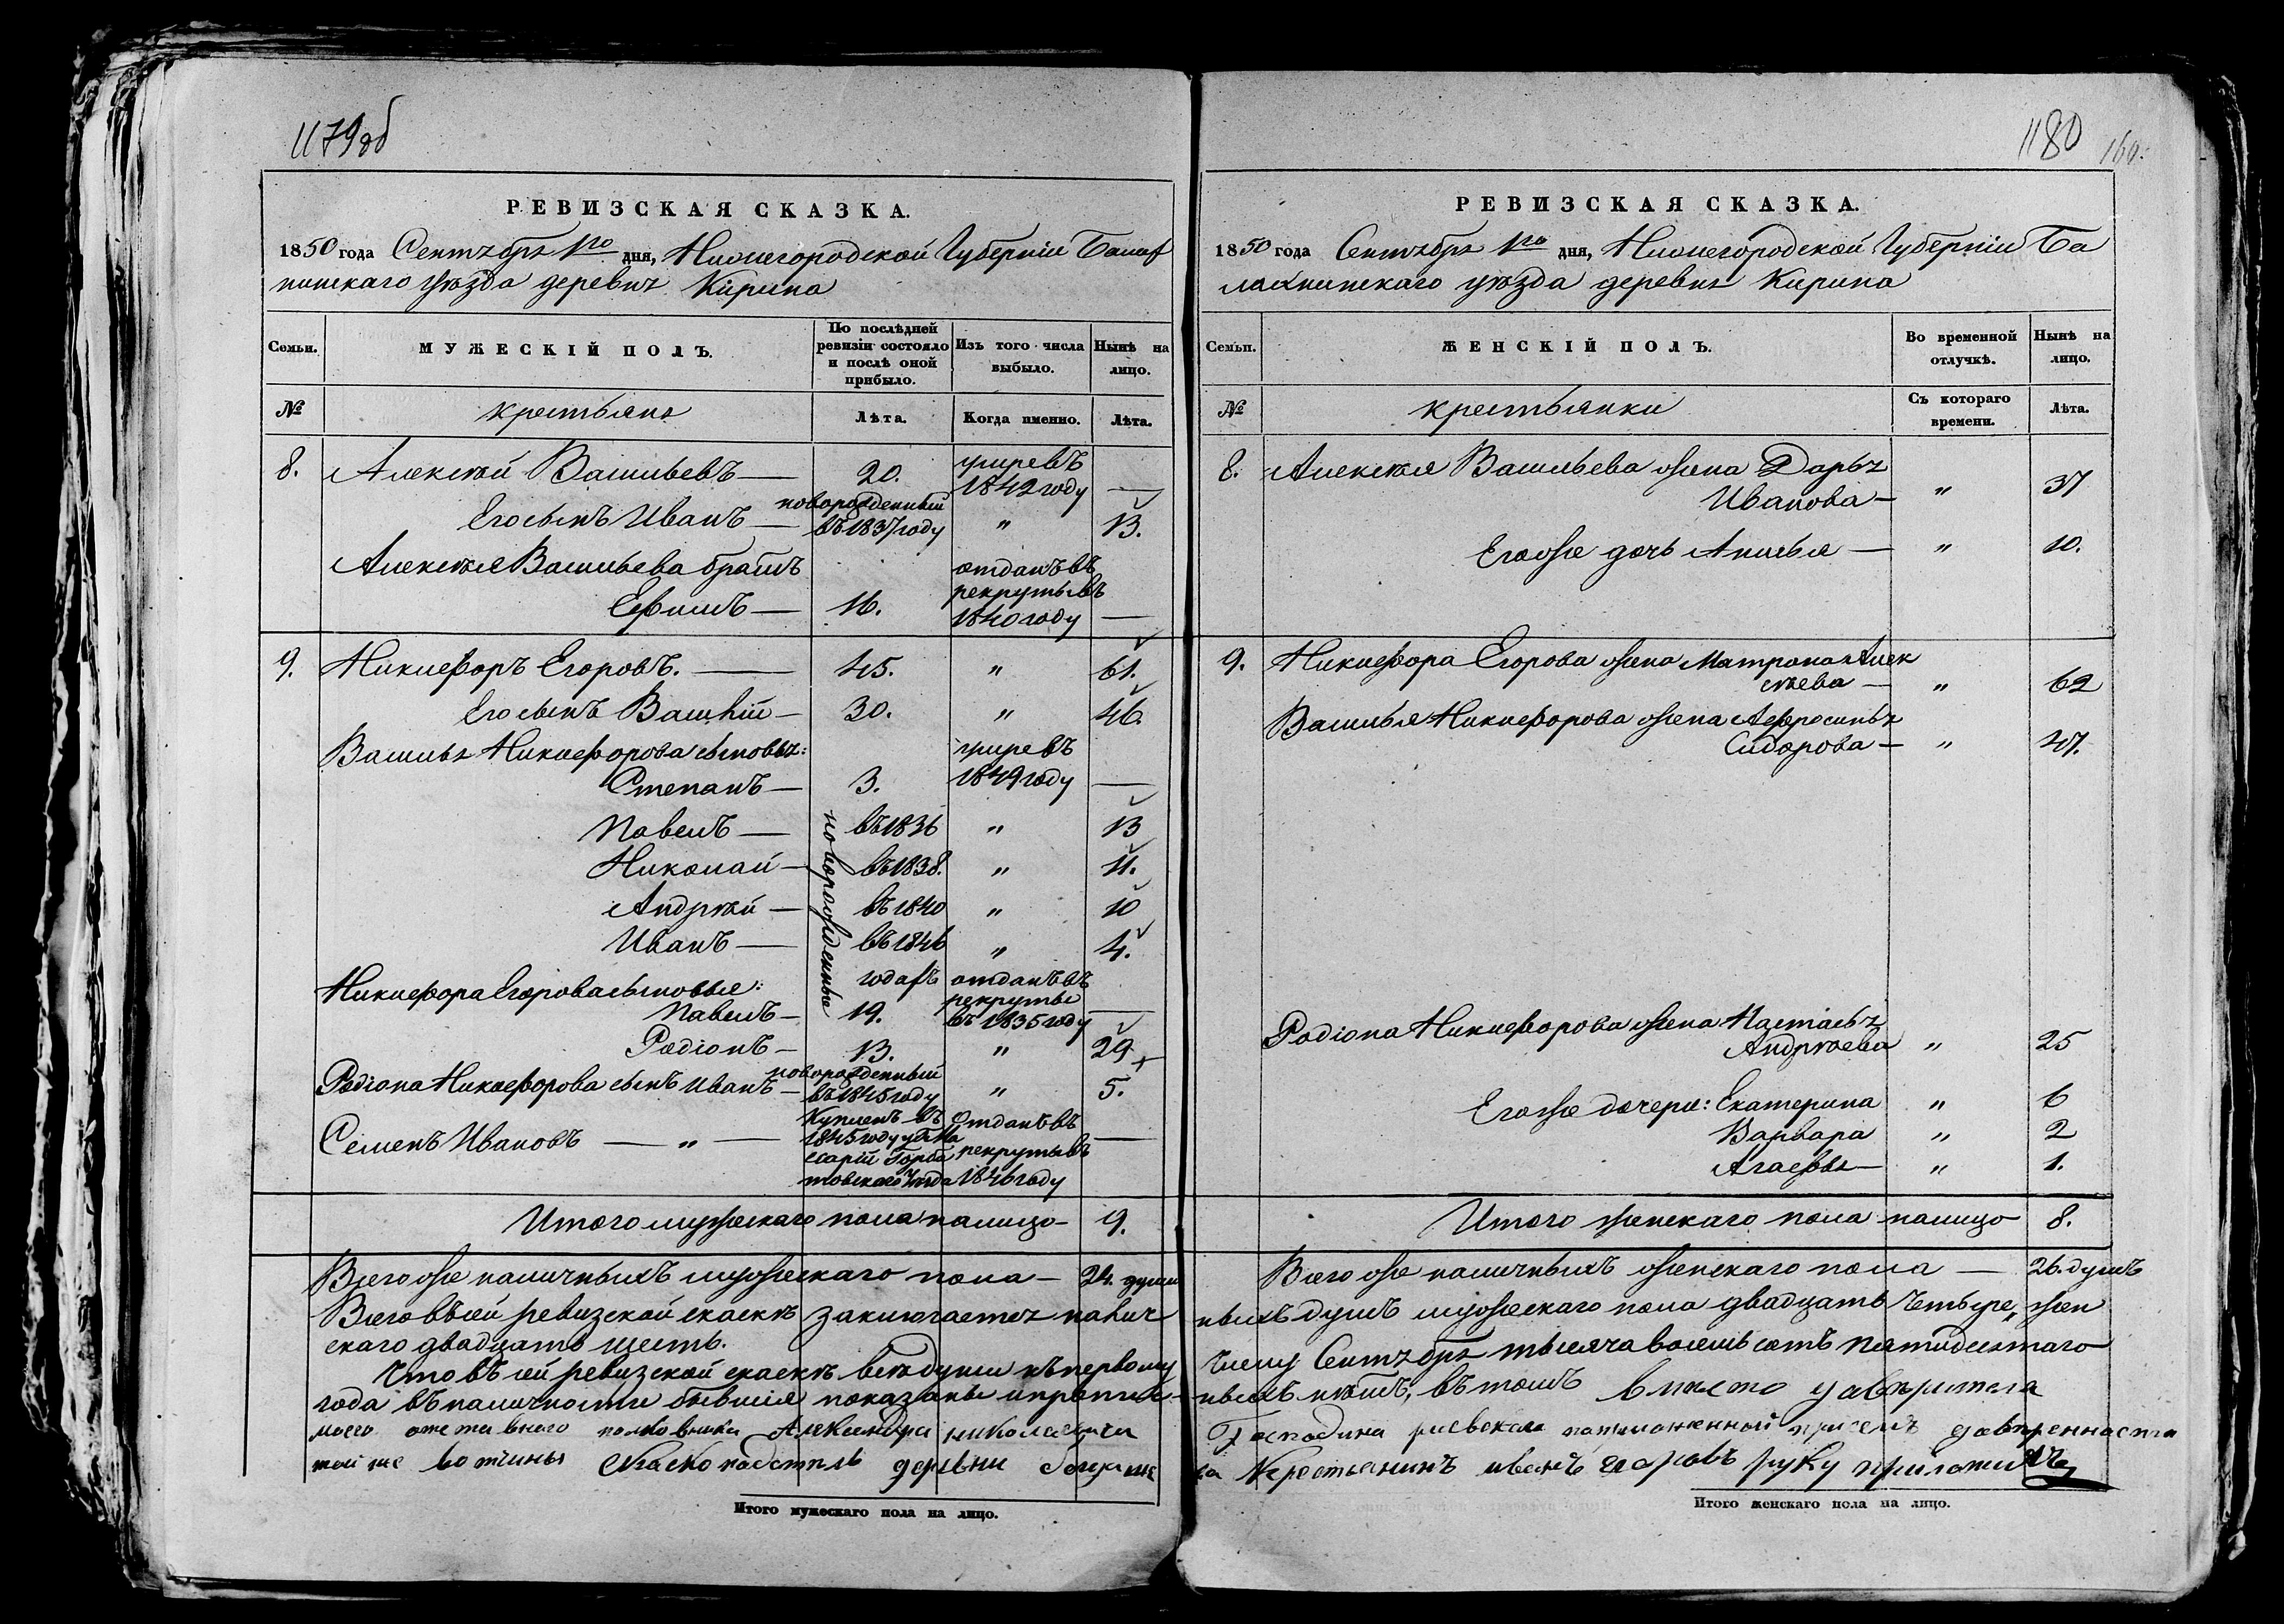 1179об
РЕВИЗСКАЯ СКАЗКА.
1850 года Сентября 1го дня, Нижегородской Губерніи Балах
нинскаго уѣзда деревня Кирина
Семьи. МУЖЕСКІЙ ПОЛЪ. По послѣдней ревизіи состояло и послѣ оной прибыло. Изъ того числа выбыло. Нынѣ на лицо.
№ крестьяне Лѣта. Когда именно. Лѣта.
8. Алексѣй Васильевъ — 20. умревъ 1842 году —
Его сынъ Иванъ — новорожденный въ 1837 году " 13.
Алексѣя Васильева братъ
Ефимъ — 16. отданъ въ рекруты въ 1840 году —
9. Никифоръ Егоровъ. — 45. " 61.
Его сынъ Василій — 30. " 46.
Василья Никифорова сыновья:
Степанъ — 3. умревъ 1849 году —
новорожденные
Павелъ — въ 1836 " 13
Николай — въ 1838. " 11.
Андрей — въ 1840 " 10
Иванъ — въ 1846 " 4.
годахъ
Никифора Егорова сыновья:
Павелъ — 19. отданъ въ рекруты въ 1835 году —
Родіонъ — 13. " 29
Родіона Никифорова сынъ Иванъ — новорожденный въ 1845 году " 5.
Семенъ Ивановъ — " — Купленъ въ 1845 году у Горбатовскаго уѣзда Отданъ въ рекруты въ 1846 году —
Итого мужескаго пола налицо — 9.
Всего же наличныхъ мужескаго пола — 24. души
Всего въ сей ревизской сказкѣ заключается налич
скаго двадцать шесть.
Что въ сей ревизской сказкѣ всѣ души къ первому
года въ наличности бывшія показаны и прописн
моего отставнаго полковника Александра николаевича
той же вотчины деревни
Итого мужескаго пола на лицо.
1180 160.
РЕВИЗСКАЯ СКАЗКА.
1850 года Сентября 1го дня, Нижегородской Губерніи Ба
лахнинскаго уѣзда деревня Кирина
Семьи. ЖЕНСКІЙ ПОЛЪ. Во временной отлучкѣ. Нынѣ на лицо.
№ крестьянки Съ котораго времени. Лѣта.
8. Алексѣя Васильева жена Дарья
Иванова — " 37
Его же дочь Анисья — " 10.
9. Никифора Егорова жена Матрона Алек
сѣева — " 62
Василья Никифорова жена Афросинья
Сидорова — " 47.
Родіона Никифорова жена Настасья
Андрѣева " 25
Его же дочери: Екатерина " 6
Варвара " 2
Агафья — " 1.
Итого женскаго пола налицо 8.
Всего же наличныхъ женскаго пола — 26. душъ
ныхъ душъ мужескаго пола двадцать четыре, жен
числу Сентября тысяча восемь сотъ пятидесятаго
ныхъ нѣтъ, въ томъ вместо уаверителя
Господина доверенности
Крестьянинъ иванъ руку приложилъ
Итого женскаго пола на лицо.